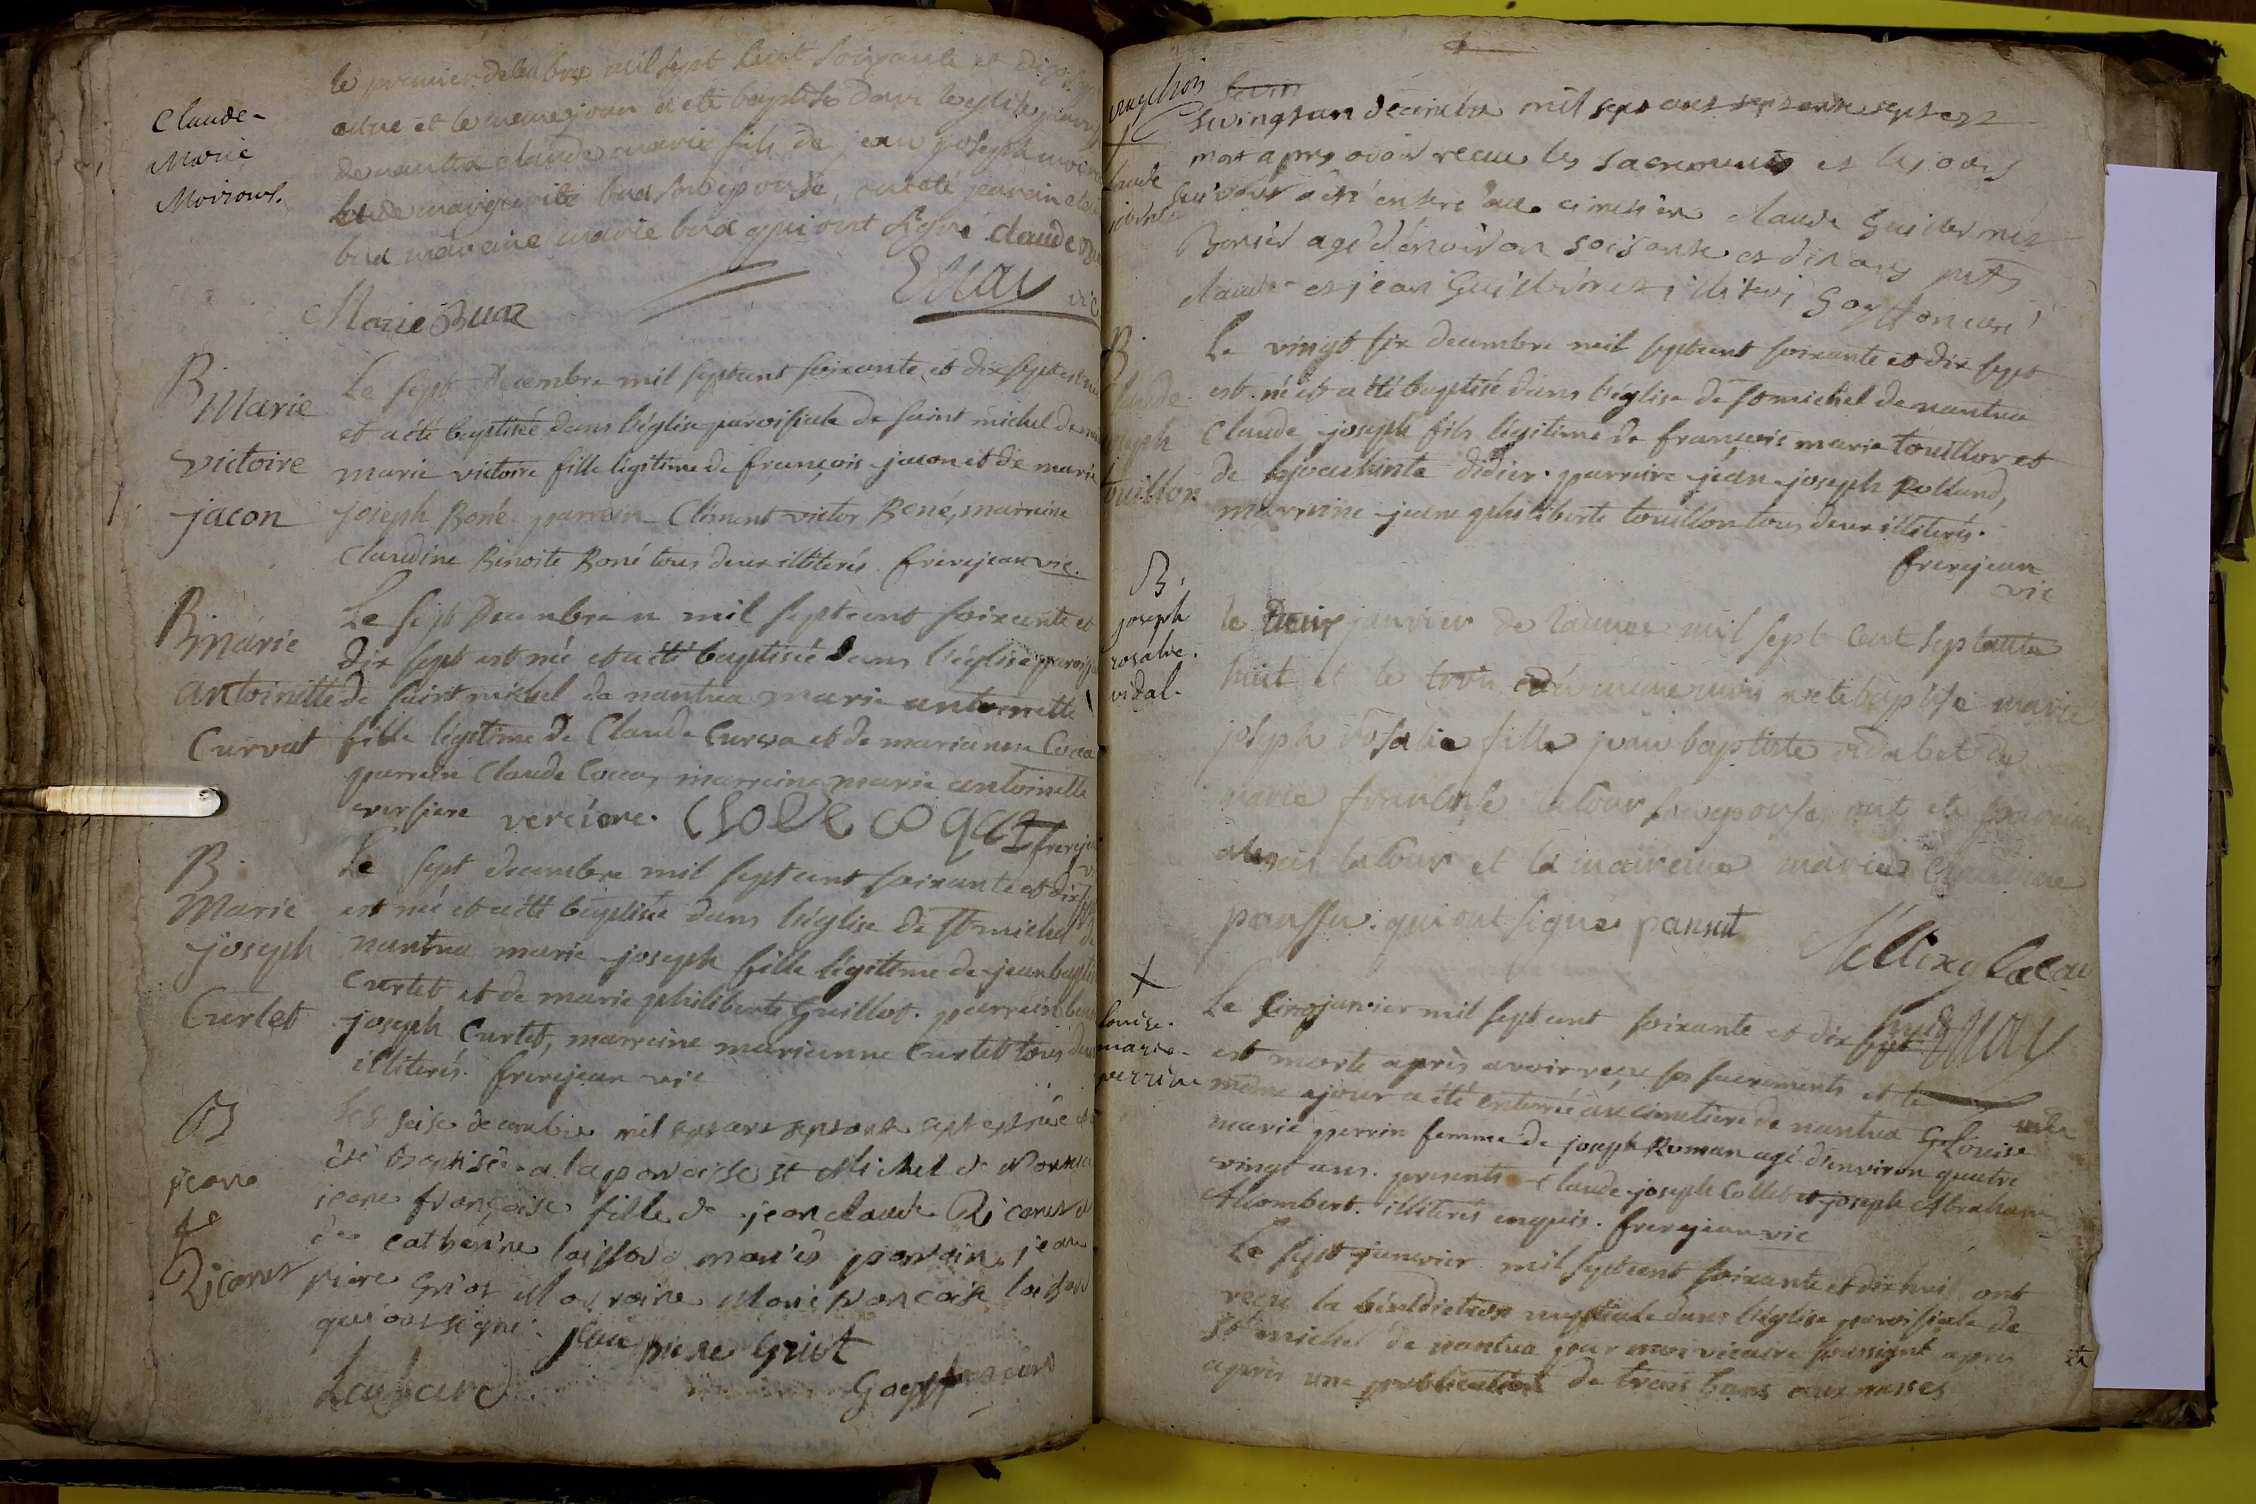 Claude-
Marie
Moiroux.
le premier decembre mil sept cent soixante et dix sept
est né et le meme jour a été baptisé dans leglise parois
de nantua claude marie fils de jean joseph moiroux
et de marguerite buaz son epouse, ont eté parrain claude
buaz maraine marie buaz qui ont signé claude
Marie Buaz
vic
B Marie
victoire
jacon
Le sept Decembre mil septcent soixante et dix sept est née
et a été baptisée dans l'église paroissiale de saint michel de
marie victoire fille légitime de françois jacon et de marie
joseph Boné parrein Climent victor Boné, marreine
Claudine Binoite Boné tous deux illiterés. frerejean vic.
B marie
antoinette
Curvat
Le sept Decembre mil septcent soixante et
dix sept est née et a été baptisée dans l'église paroissi
de saint michel de nantua marie antoinette
fille légitime de Claude Curva et de marianne Cocaz
parrein Claude Cocaz, marreine marie antoinette
versiere verciere. Clode coqaz frerejean
B
Marie
joseph
Curtet
Le sept decembre mil septcent soixante et dix sept
est née et a été baptisée dans l'église de st michel de
nantua marie joseph fille légitime de jean baptiste
Curtet et de marie philiberte Guillot. parrein
joseph Curtet, marreine marianne Curtet tous deux
illiterés. frerejean vic
B
jeane
fse
Ricaret
le seise decembre mil sept cent septante sept est née et a
été baptisée a la paroisse st Michel de Nantua
jeane françoise fille de jean claude Ricaret et
de catherine laissard mariés parrain jean
piere Griot Marraine Marie françoise laissard
qui ont signé. jean piere Griot
Laissard
curé
le vingt un décembre mil sept cent septante sept est
mort apres avoir receu les sacrements et le jour
suivant a été enterré au cimetiere claude Guillermet
agé d'environ soisante et dix ans
claude et jean Guillermet curé
B
Claude
joseph
touillon
Le vingt six decembre mil septcent soixante et dix sept
est né et a été baptisé dans l'église de st michel de nantua
Claude joseph fils légitime de françois marie touillon et
de hyacinthe didier. parreire jean joseph Rolland,
marreine jeane philiberte touillon tous deux illiterés.
frerejean
vic
B.
joseph
rosalie.
vidal.
le deux janvier de lannée mil sept cent septante
huit et le trois du meme mois a eté baptisé marie
joseph rosalie fille jean baptiste vidal et de
marie françoise latour son epouse, ont eté parrain
latour et la maireine marie claudine
pansu. qui ont signés pansut
+
louise.
marie-
perrin
Le cinq janvier mil septcent soixante et dix huit
est morte après avoir reçu ses sacrements et le
meme jour a été enterrée au cimetiere de nantua Louise
marie perrin femme de joseph Roman agé d'environ quatre
vingt ans. presents Claude joseph Collet et joseph Abraham
Alombert. illiterés enquis. frerejean vic
Le sept janvier mil septcent soixante et dix huit ont
reçu la bénédiction nuptiale dans l'église paroissiale de
st michel de nantua par moi vicaire soussigné apres
après une publication de trois bans aux messes